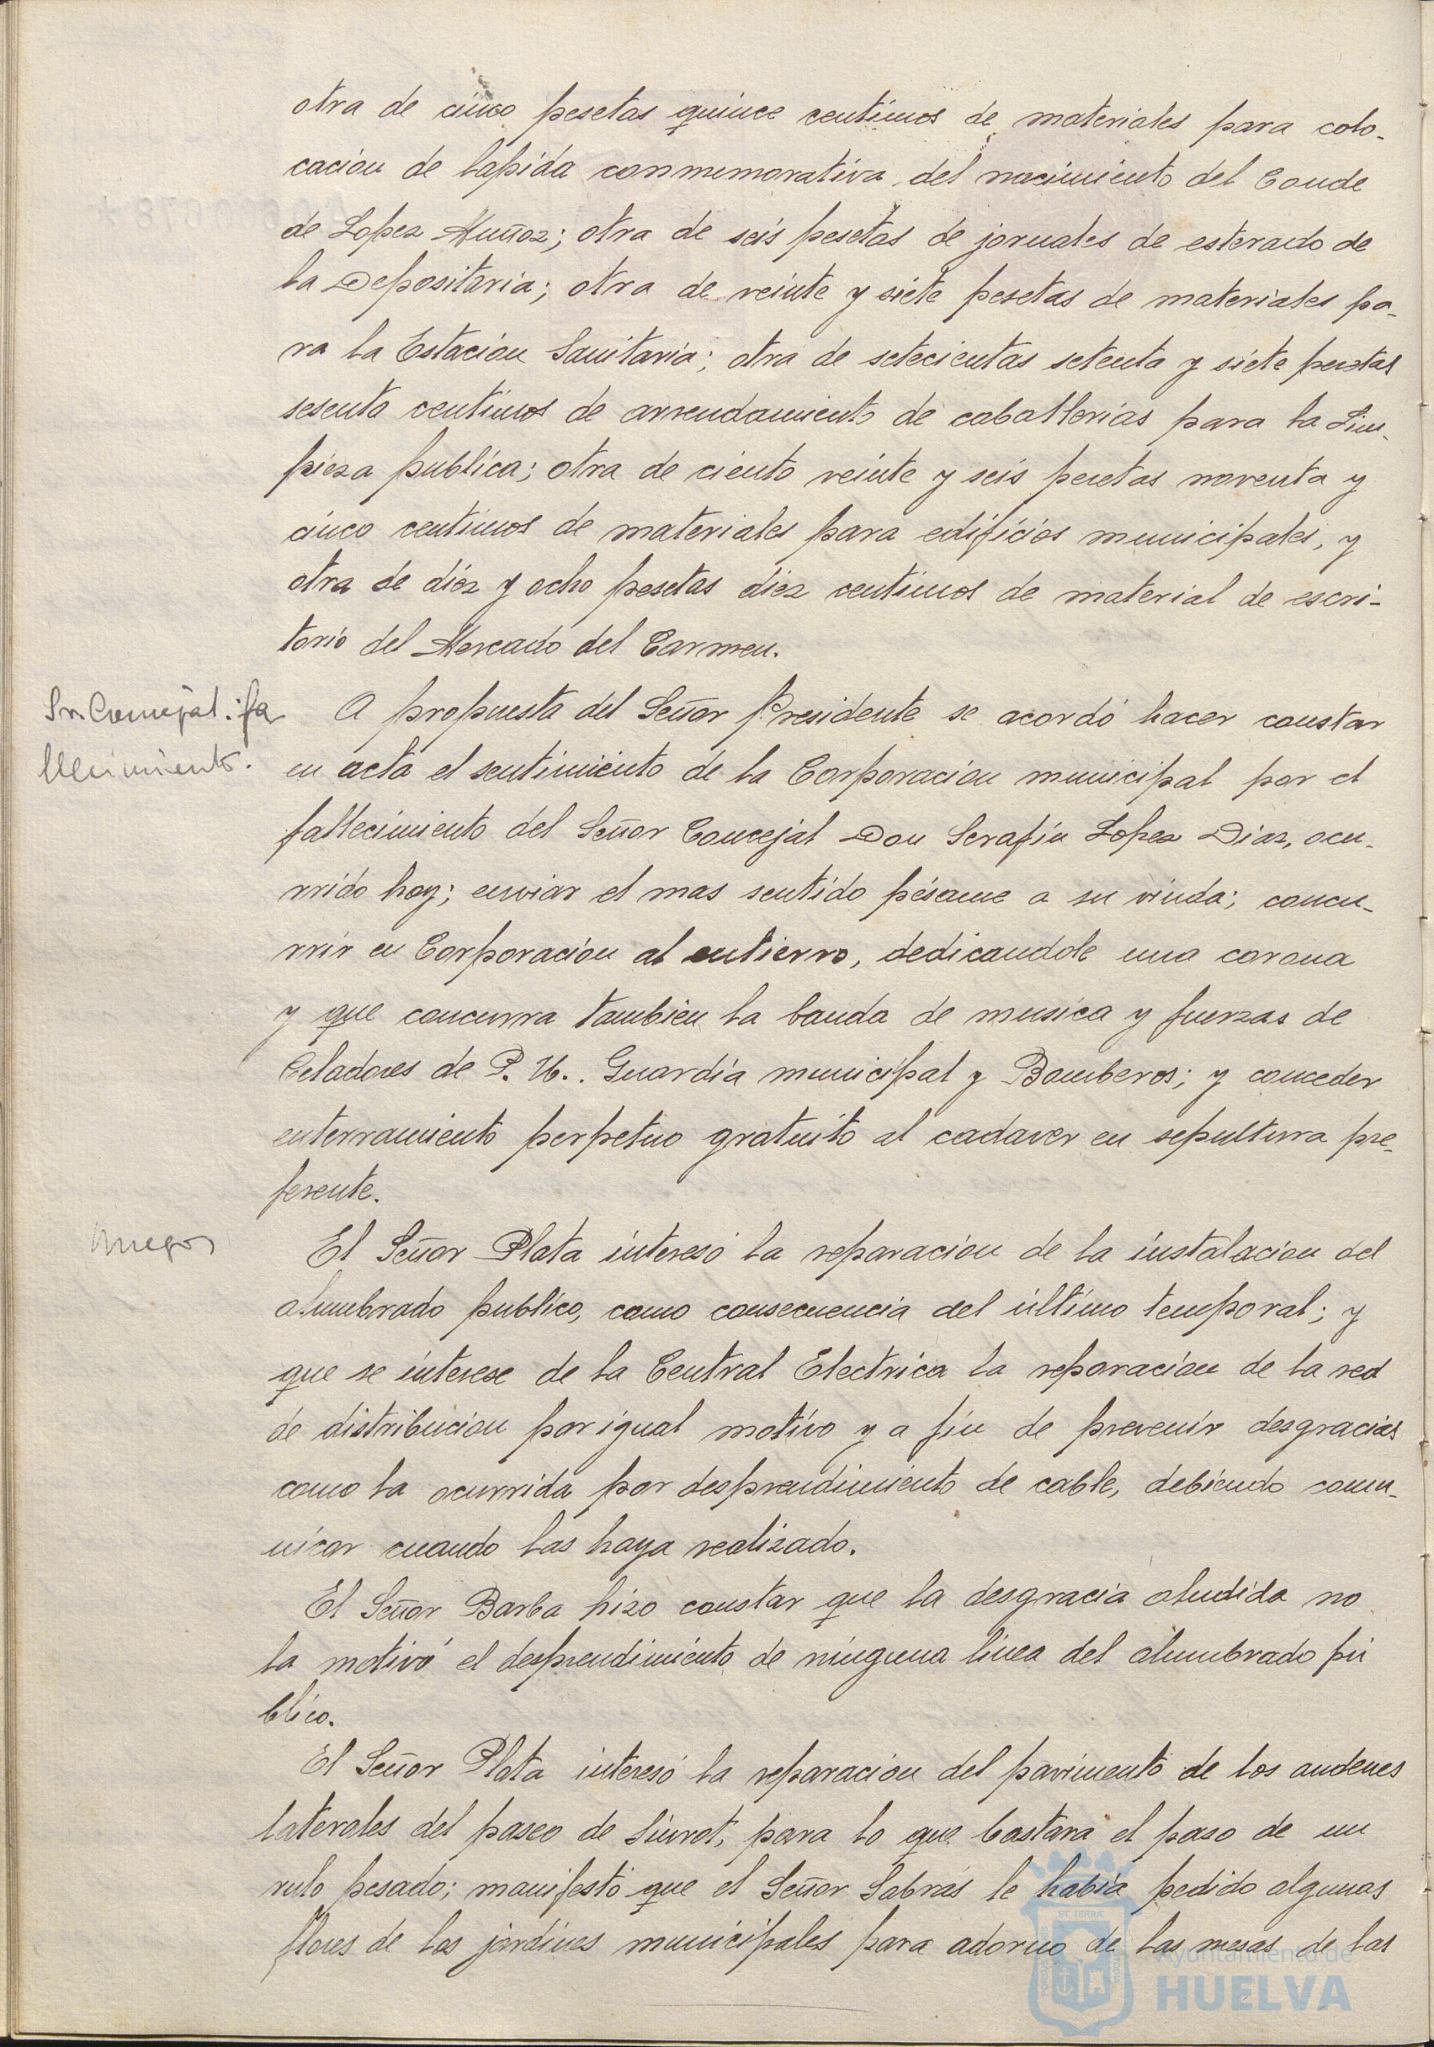 otra de cinco pesetas quince centimos de materiales para colo-
cacion de lapida conmemorativa del nacimiento del Conde
de Lopez Muñoz; otra de seis pesetas de jornales de esterado de
la Depositaria; otra de veinte y siete pesetas de materiales pa-
ra la Estacion Sanitaria; otra de setecientas setenta y siete pesetas
sesenta centimos de arrendamiento de caballerias para la Lim-
pieza publica; otra de ciento veinte y seis pesetas noventa y
cinco centimos de materiales para edificios municipales, y
otra de diez y ocho pesetas diez centimos de material de escri-
torio del Mercado del Carmen.
Sr. Concejal: fa
llecimiento.
A propuesta del Señor Presidente se acordó hacer constar
en acta el sentimiento de la Corporacion municipal por el
fallecimiento del Señor Concejal Don Serafin Lopez Diaz, ocu-
rrido hoy; enviar el mas sentido pésame a su viuda; concu-
rrir en Corporacion al entierro, dedicandole una corona
y que concurra tambien la banda de musica y fuerzas de
Celadores de P. U.. Guardia municipal y Bomberos; y conceder
enterramiento perpetuo gratuito al cadaver en sepultura pre-
ferente.
Ruegos
El Señor Plata interesó la reparacion de la instalacion del
alumbrado publico, como consecuencia del último temporal; y
que se interese de la Central Electrica la reparacion de la red
de distribucion por igual motivo y a fin de prevenir desgracias
como la ocurrida por desprendimiento de cable, debiendo comu-
nicar cuando las haya realizado.
El Señor Barba hizo constar que la desgracia aludida no
la motivó el desprendimiento de ninguna linea del alumbrado pú
blico.
El Señor Plata interesó la reparacion del pavimento de los andenes
laterales del paseo de Siurot, para lo que bastara el paso de un
rulo pesado; manifestó que el Señor Sabras le habia pedido algunas
flores de los jardines municipales para adorno de las mesas de las
Ayuntamiento de
HUELVA